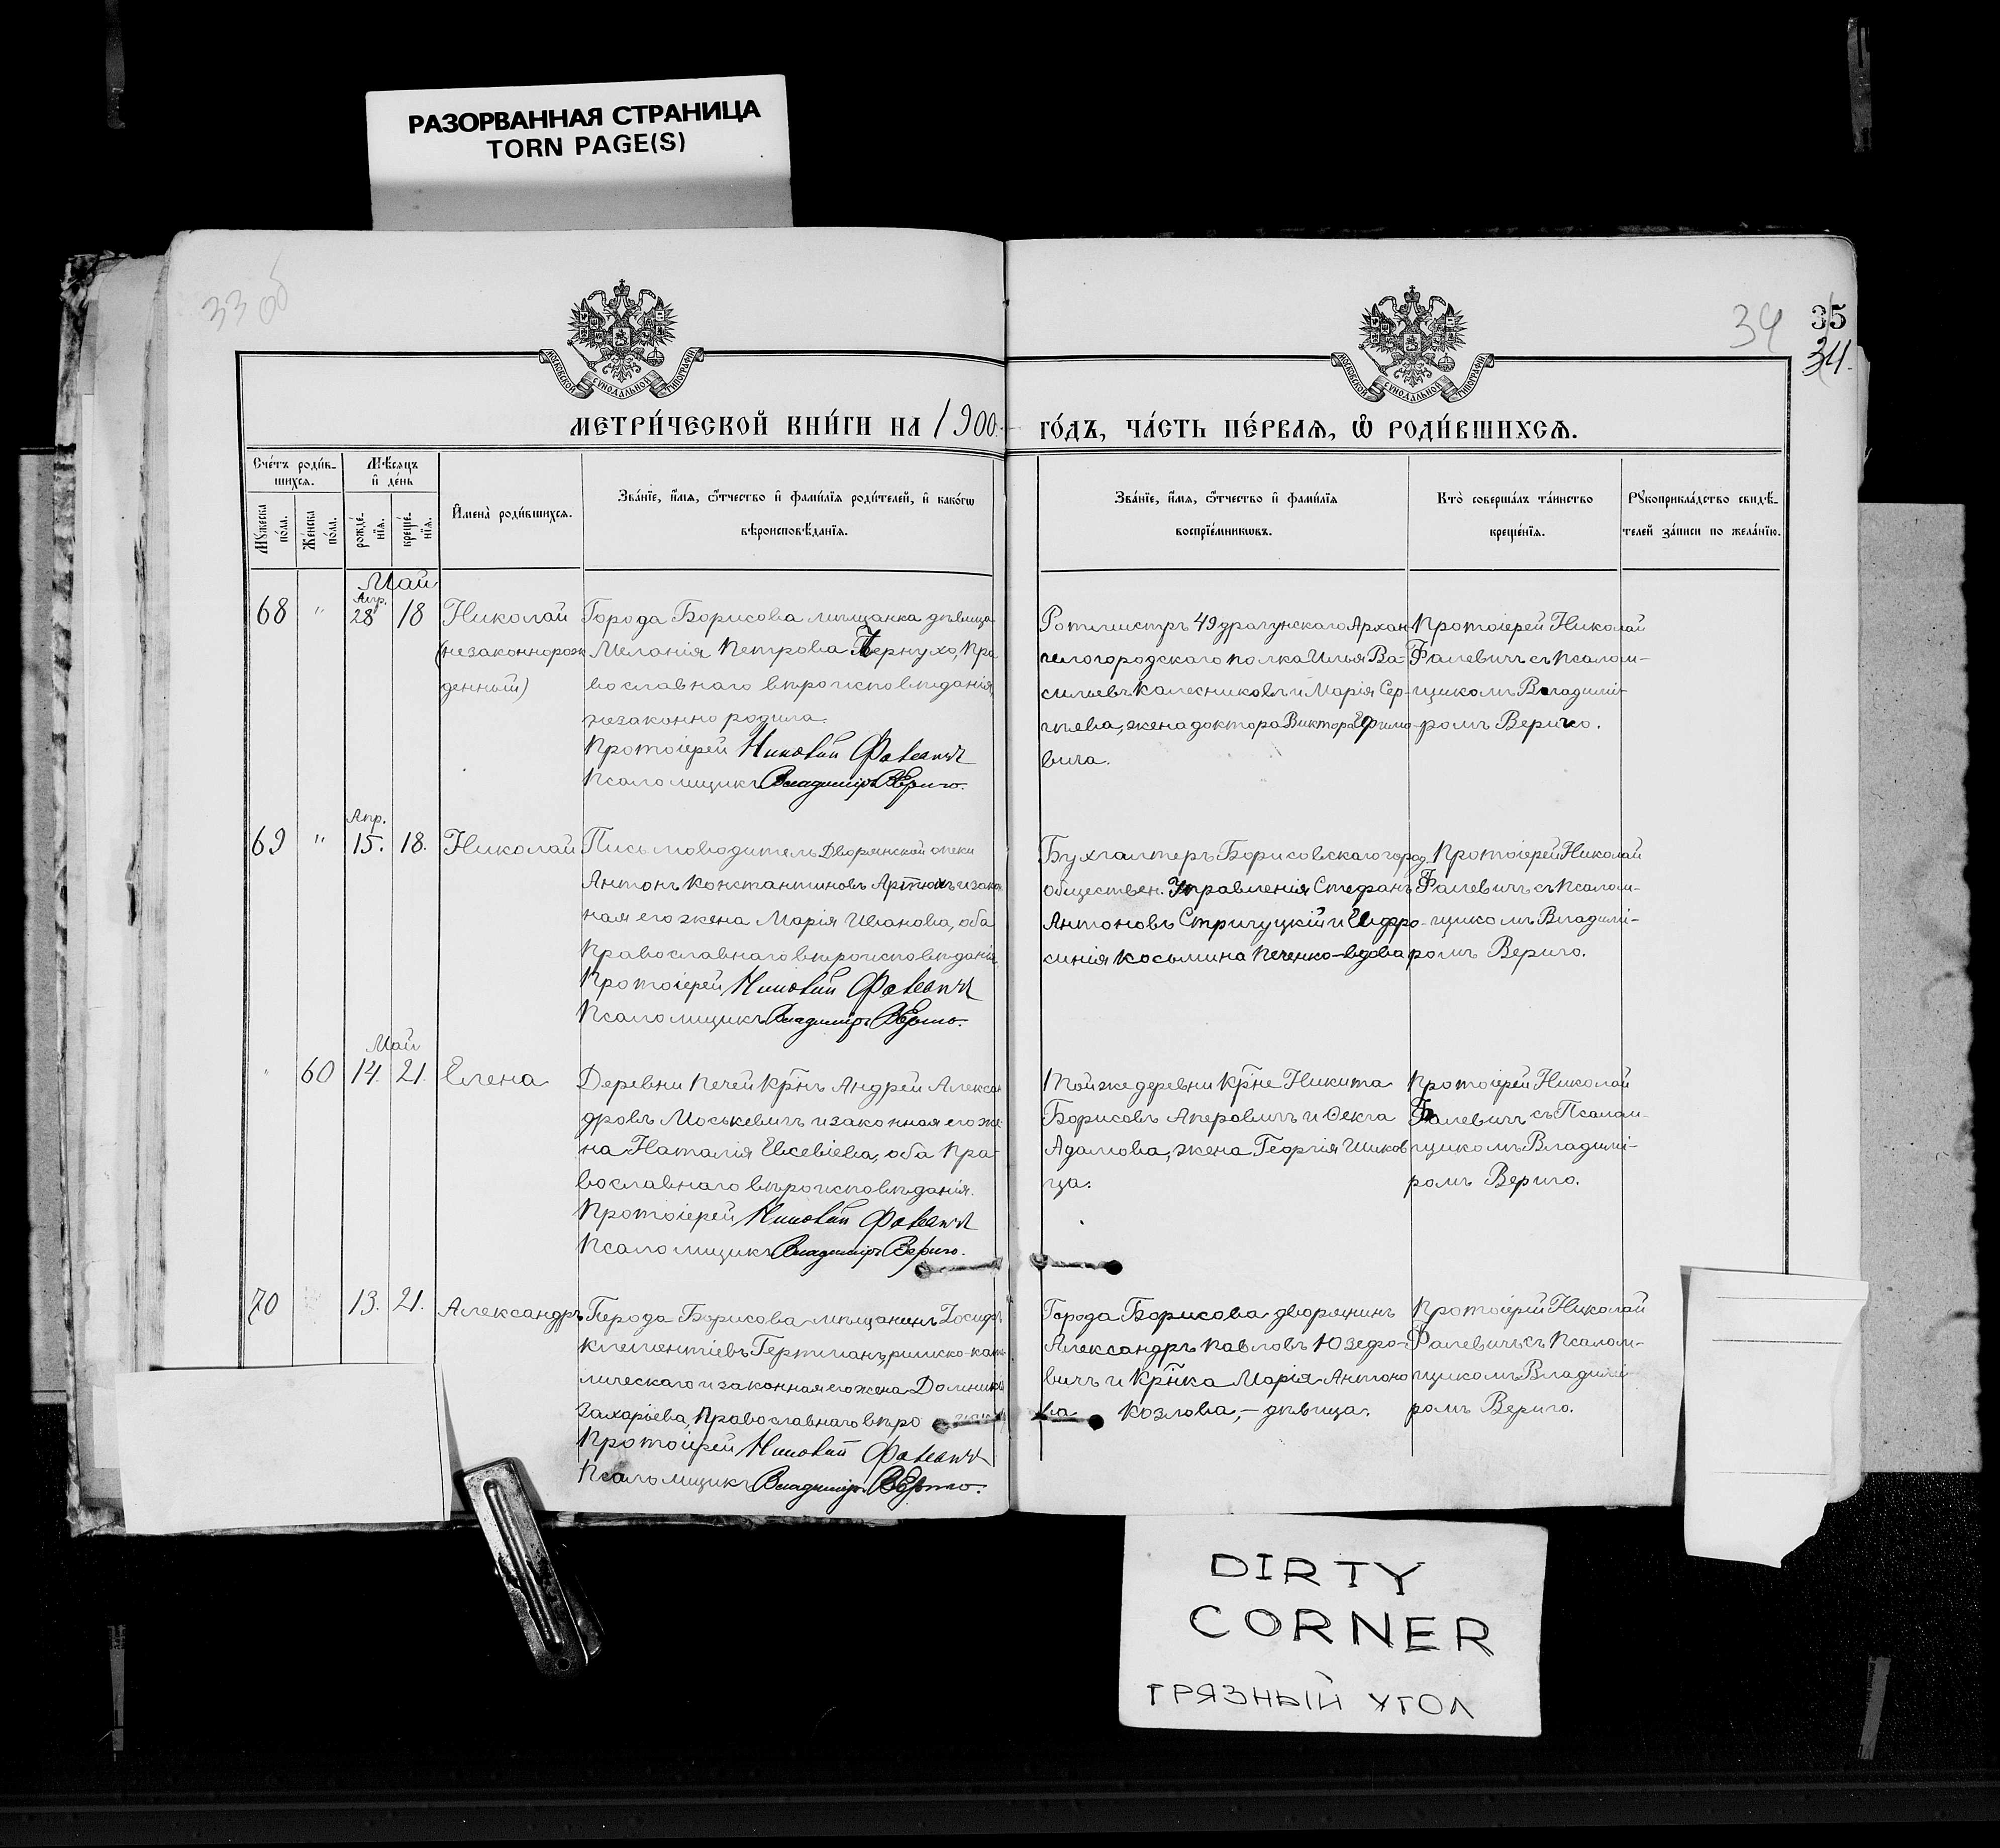 РАЗОРВАННАЯ СТРАНИЦА
TORN PAGE(S)
33 об
34
35
34.
МОСКОВСКОЙ СѴНОДАЛЬНОЙ ТИПОГРАФІИ
МОСКОВСКОЙ СѴНОДАЛЬНОЙ ТИПОГРАФІИ
МЕТРИ́ЧЕСКОЙ КНИ́ГИ НА 1900
ГО́ДЪ, ЧА́СТЬ ПЕ́РВАѦ, Ѡ҆ РОДИ́ВШИХСѦ.
Сче́тъ роди́в-
шихсѧ.
Мѣ́сѧцъ
и҆ де́нь
Мꙋ́жеска
по́ла.
Же́нска
по́ла.
рожде́-
нїѧ.
креще́-
нїѧ.
И҆мена̀ роди́вшихсѧ.
Зва́нїе, и҆́мѧ, ѻ҆́тчество и҆ фами́лїѧ роди́телей, и҆ како́гѡ
вѣроисповѣ́данїѧ.
Зва́нїе, и҆́мѧ, ѻ҆́тчество и҆ фами́лїѧ
воспрїе́мникѡвъ.
Кто̀ соверша́лъ та́инство
креще́нїѧ.
Рꙋкоприкла́дство свидѣ́-
телей за́писи по жела́нїю.
Май
Апр.
68 " 28 18 Николай
(незаконнорож
денный)
Города Борисова мѣщанка дѣвица
Меланія Петрова Пернухо, Пра
вославнаго вѣроисповѣданія,
незаконно родила.
Протоіерей Николай Фалевичъ
Псаломщикъ Владиміръ Вериго.
Ротмистръ 49 драгунскаго Архан
гелогородскаго полка Илья Ва-
сильевъ Калесниковъ и Марія Сер-
гѣева, жена доктора Виктора Ефимо
вича.
Протоіерей Николай
Фалевичъ съ Псалом-
щикомъ Владимі-
ромъ Вериго.
Апр.
69 " 15. 18. Николай
Письмоводитель Дворянской опеки
Антонъ Константиновъ Артюхъ и закон
ная его жена Марія Иванова, оба
Православнаго вѣроисповѣданія
Протоіерей Николай Фалевичъ
Псаломщикъ Владиміръ Вериго.
Бухгалтеръ Борисовскаго город.
обществен. Управленія Стефанъ
Антоновъ Стригуцкій и Ефро-
синія Косьмина Печенко-вдова
Протоіерей Николай
Фалевичъ съ Псалом-
щикомъ Владимі-
ромъ Вериго.
Май
" 60 14. 21. Елена
Деревни Печей Кр̃нъ Андрей Алексан
дровъ Моськевичъ и законная его же
на Наталія Евсевіева, оба Пра-
вославнаго вѣроисповѣданія.
Протоіерей Николай Фалевичъ
Псаломщикъ Владиміръ Вериго.
Той же деревни Кр̃не Никита
Борисовъ Аперовичъ и Ѳекла
Адамова, жена Георгія Шиков
ца.
Протоіерей Николай
Фалевичъ съ Псалом-
щикомъ Владимі-
ромъ Вериго.
70 13. 21. Александръ
Города Борисова мѣщанинъ Іосифъ
Климентіевъ Гертманъ, римско-като
лическаго и законная его жена Домникія
Захаріева, Православнаго вѣро
Протоіерей Николай Фалевичъ
Псаломщикъ Владиміръ Вериго.
Города Борисова дворянинъ
Александръ Павловъ Юзефо-
вичъ и Кр̃нка Марія Антоно
ва Козлова, - дѣвица.
Протоіерей Николай
Фалевичъ съ Псалом-
щикомъ Владимі
ромъ Вериго.
DIRTY
CORNER
ГРЯЗНЫЙ УГОЛ